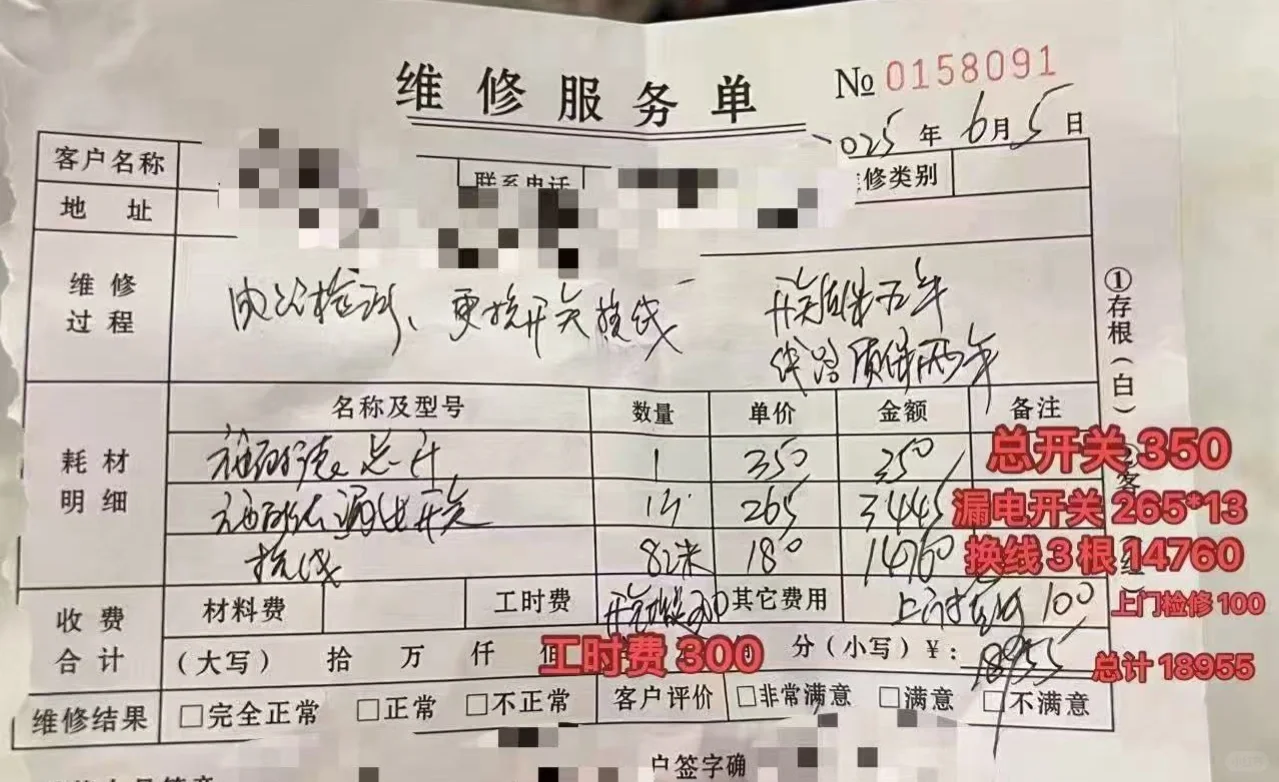 维修服务单
№ 0158091
2025年6月5日
客户名称 联系电话 维修类别
地址
维修过程 更换开关换线 开关质保五年
线路质保两年
①存根(白)
耗材明细 名称及型号 数量 单价 金额 备注
施耐德 总开 1 350 350 总开关 350
施耐德漏电开关 13 265 3445 漏电开关 265*13
换线 82米 180 14760 换线3根14760
收费合计 材料费 工时费 300 其它费用 上门检修 100 上门检修 100
(大写) 拾 万 仟 佰 工时费 300 分(小写)¥: 18955 总计 18955
维修结果 □完全正常 □正常 □不正常 客户评价 □非常满意 □满意 □不满意
户签字确